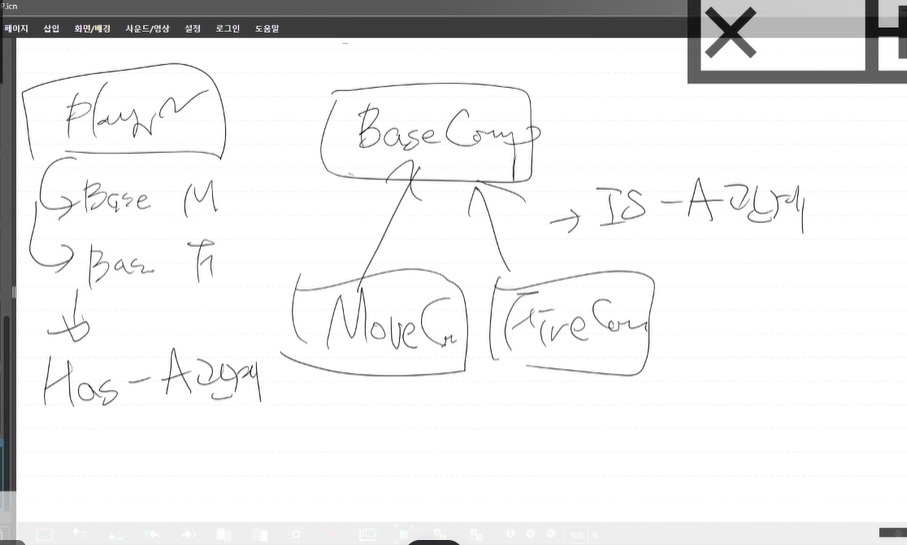 P.icn
페이지 삽입 화면/배경 사운드/영상 설정 로그인 도움말
Player
Base M
Base Fi
Has-A관계
BaseComp
→ IS-A관계
MoveCo
FireCom